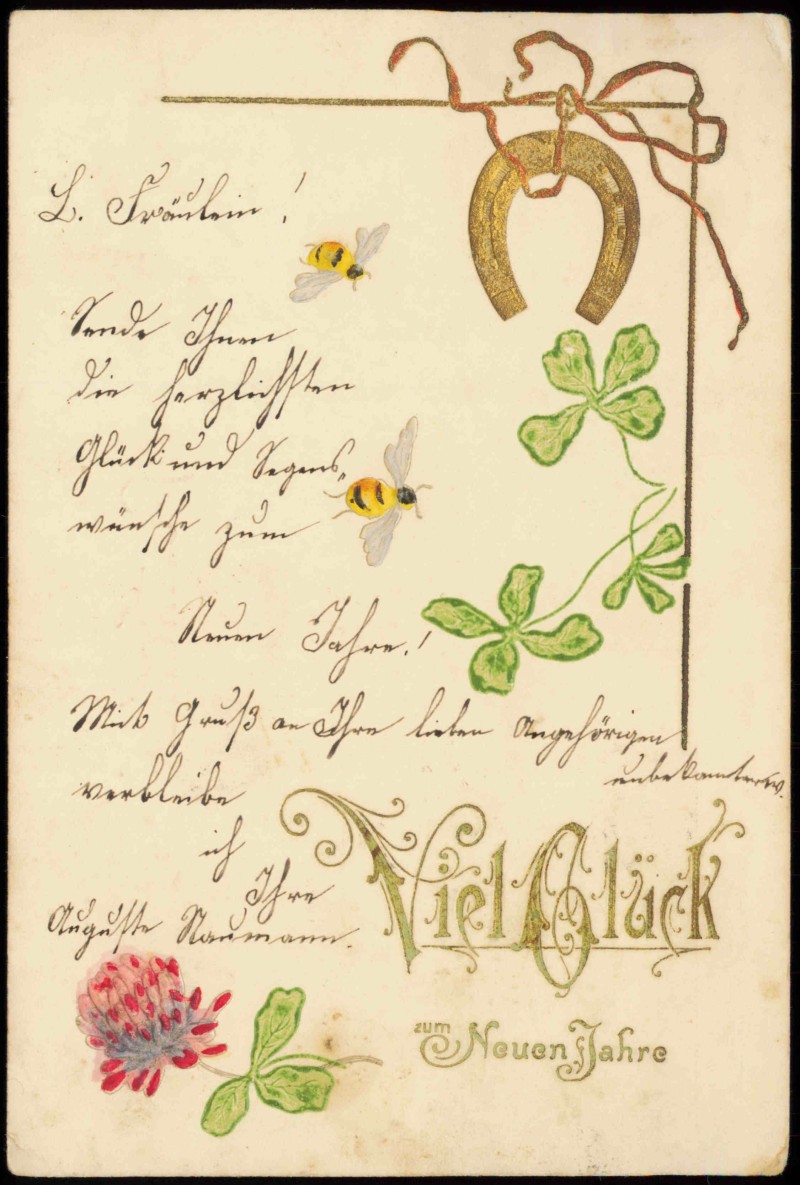 L. Fräulein!
Sende Ihnen
die herzlichsten
Glück- und Segens-
wünsche zum
Neuen Jahre!
Mit Gruß an Ihre lieben Angehörigen
unbekannterw.
verbleibe
ich
Ihre
Auguste Naumann.
Viel Glück
zum
Neuen Jahre